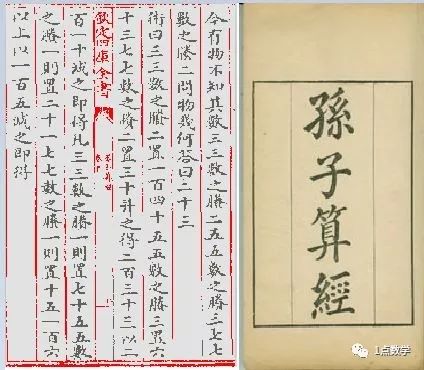 今有物不知其數三三數之賸二五五數之賸三七七
數之賸二問物幾何答曰二十三
術曰三三數之賸二置一百四十五五數之賸三置六
十三七七數之賸二置三十并之得二百三十三以二
欽定四庫全書
百一十減之即得凡三三數之賸一則置七十五五數
之賸一則置二十一七七數之賸一則置十五一百六
以上以一百五減之即得
孫子算經
1点教学